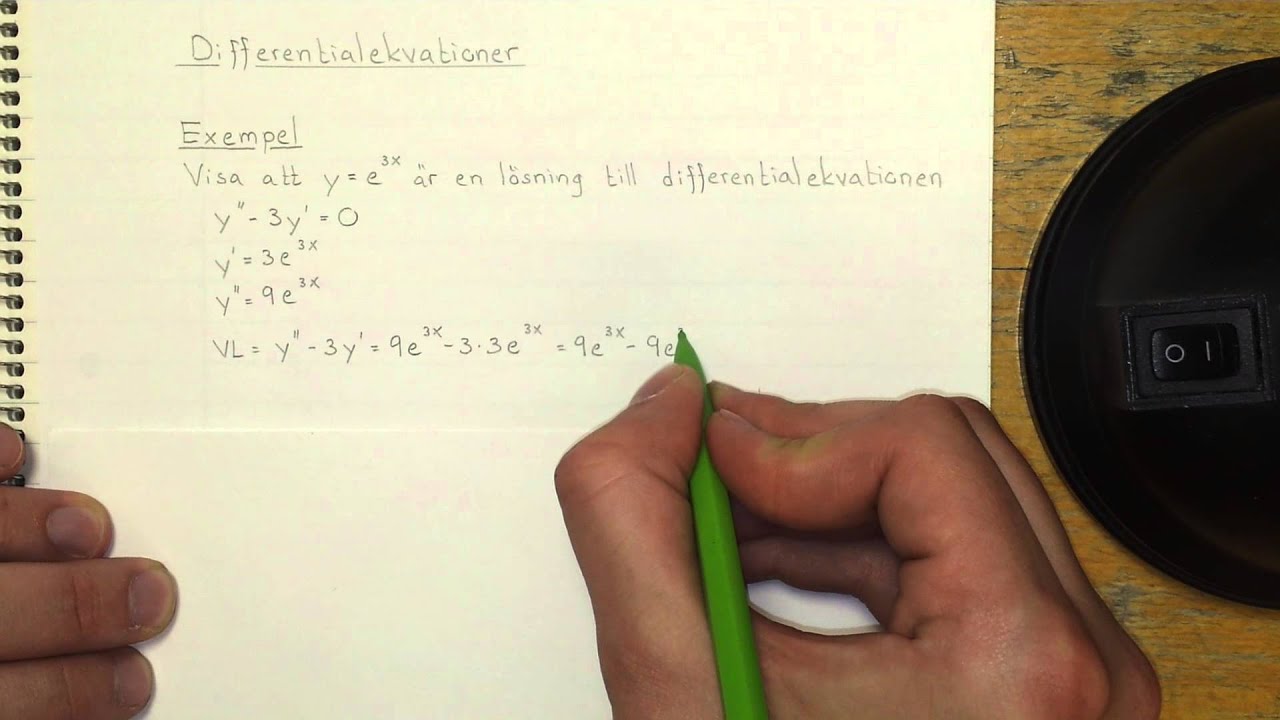 Differentialekvationer
Exempel
Visa att y = e^3x är en lösning till differentialekvationen
y'' - 3y' = 0
y' = 3e^3x
y'' = 9e^3x
VL = y'' - 3y' = 9e^3x - 3·3e^3x = 9e^3x - 9e
O I